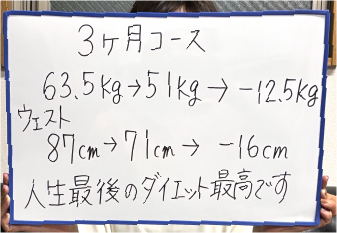 3ヶ月コース
63.5kg→51kg→-12.5kg
ウェスト
87cm→71cm→-16cm
人生最後のダイエット最高です